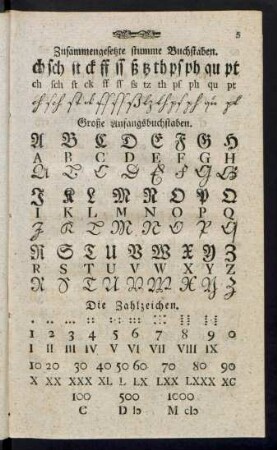 5
Zusammengesetzte stumme Buchstaben.
ch sch st ck ff ss ß tz th ps ph qu pt
ch sch ſt ck ff ſſ ß tz th pſ ph qu pt
ch sch st ck ff ss ß tz th ps ph qu pt
Große Anfangsbuchstaben.
A B C D E F G H
A B C D E F G H
A B C D E F G H
J K L M N O P Q
I K L M N O P Q
J K L M N O P Q
R S T U V W X Y Z
R S T U V W X Y Z
R S T U V W X Y Z
Die Zahlzeichen.
1 2 3 4 5 6 7 8 9 0
I II III IV V VI VII VIII IX
10 20 30 40 50 60 70 80 90
X XX XXX XL L LX LXX LXXX XC
100 500 1000
C D IↃ M CIↃ